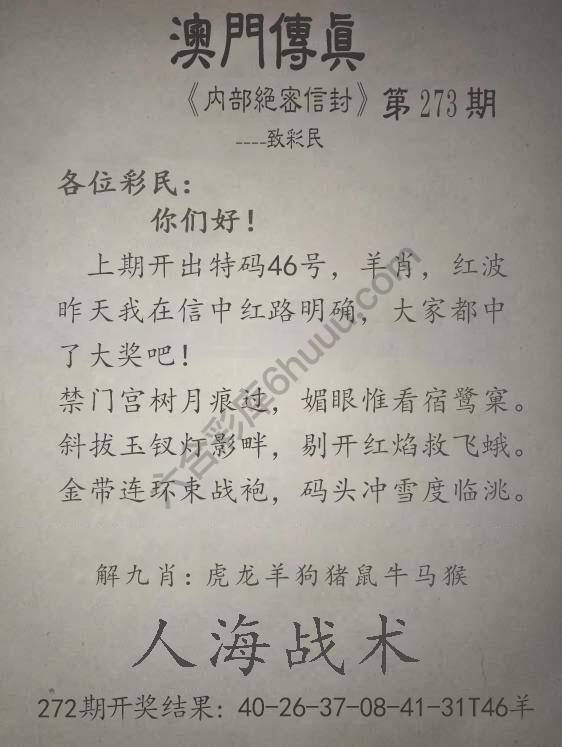 澳門傳真
《内部絕密信封》第273期
----致彩民
各位彩民：
你们好！
上期开出特码46号，羊肖，红波
昨天我在信中红路明确，大家都中
了大奖吧！
禁门宫树月痕过，媚眼惟看宿鹭窠。
斜拔玉钗灯影畔，剔开红焰救飞蛾。
金带连环束战袍，码头冲雪度临洮。
解九肖：虎龙羊狗猪鼠牛马猴
人海战术
272期开奖结果：40-26-37-08-41-31T46羊
六合彩库6huuu.com